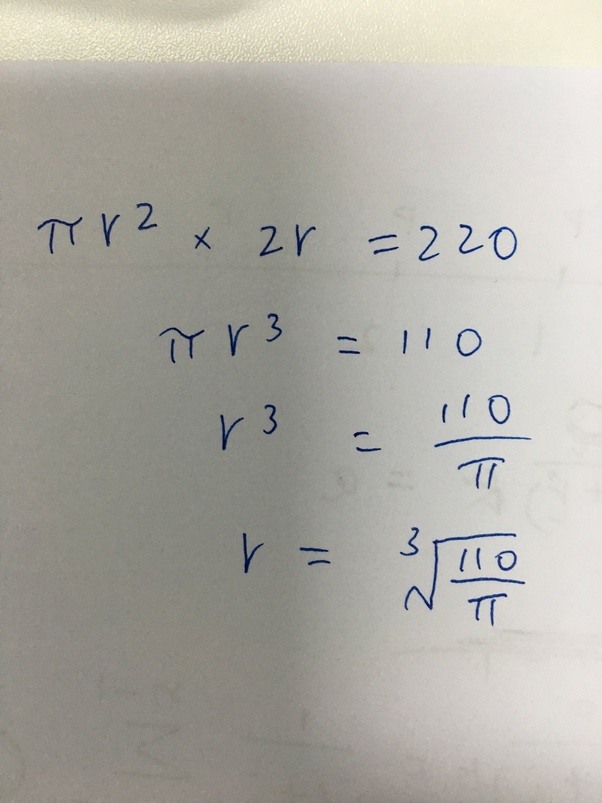 πr² × 2r = 220
πr³ = 110
r³ = 110/π
r = ∛(110/π)